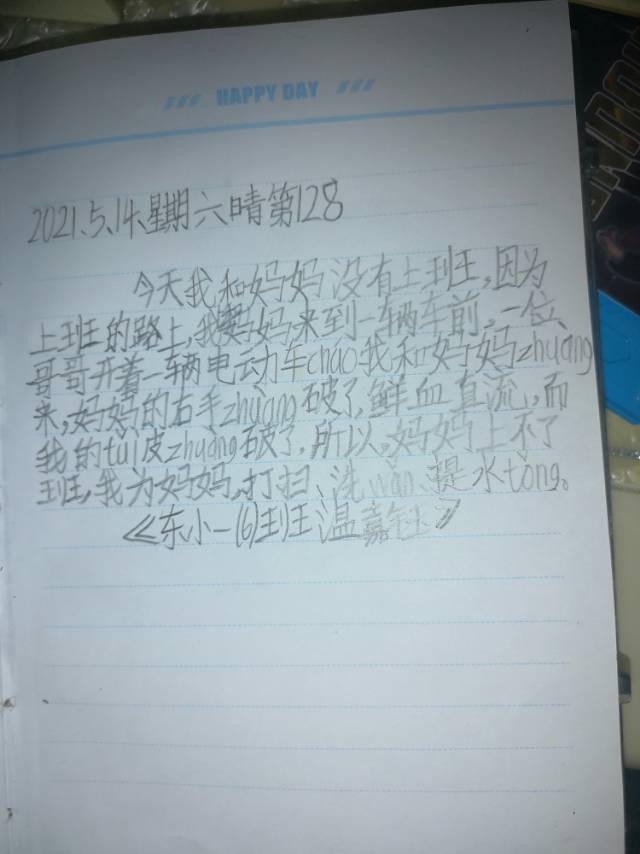 HAPPY DAY
2021.5.14.星期六晴第128
今天我和妈妈没有上班,因为
上班的路上,我妈妈来到一辆车前,一位
哥哥开着一辆电动车cháo我和妈妈zhuàng
来,妈妈的右手zhuàng破了,鲜血直流,而
我的tuǐ皮zhuàng破了,所以,妈妈上不了
班,我为妈妈,打扫、洗wǎn、提水tǒng。
《东小一(6)班温嘉钰》